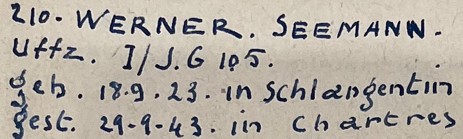 210. WERNER. SEEMANN.
Uffz. I/J.G 105.
geb. 18.9.23. in Schlangentin
gest. 29-9-43. in Chartres